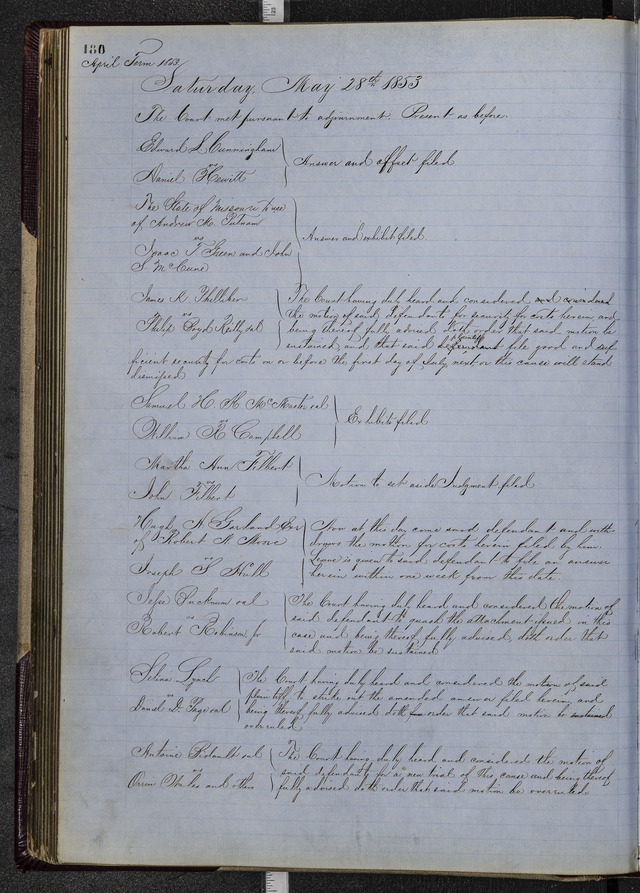 180
April Term 1853
Saturday, May 28th 1853
The Court met pursuant to adjournment. Present as before.
Edward L Cunningham
vs
Daniel Hewitt
Answer and affdt filed
The State of Missouri to use
of Andrew H. Putnam
vs
Isaac T Green and John
S McCune
Answer and exhibit filed
James K
vs
Philip Boyd et al
The Court having duly heard and considered and considered
the motion of said defendant for security for costs herein and
being thereof fully advised, doth order that said motion be
sustained and that said defendant plaintiff file good and suf
ficient security for costs on or before the first day of July next, or this cause will stand
dismissed
Samuel H. H. McMaster et al
vs
William R Campbell
Exhibits filed
Martha Ann Filbert
vs
John Filbert
Motion to set aside Judgment filed
Hugh A Garland Exr
of Robert N Moore
vs
Joseph S Hull
Now at this day come said defendant and with-
draws the motion for costs herein filed by him.
Leave is given to said defendant to file an answer
herein within one week from this date.
Jefse et al
vs
Robert Robinson Jr
The Court having duly heard and considered the motion of
said defendant to quash the attachment issued in this
case and being thereof fully advised, doth order that
said motion be sustained
Selina Lynch
vs
Daniel D. Page et al
The Court having duly heard and considered the motion of said
plaintiff to strike out the amended answer filed herein, and
being thereof fully advised doth order that said motion be sustained
overruled
Antoine et al
vs
Orrin and others
The Court having duly heard and considered the motion of
said defendants for a new trial of this cause and being thereof
fully advised doth order that said motion be overruled